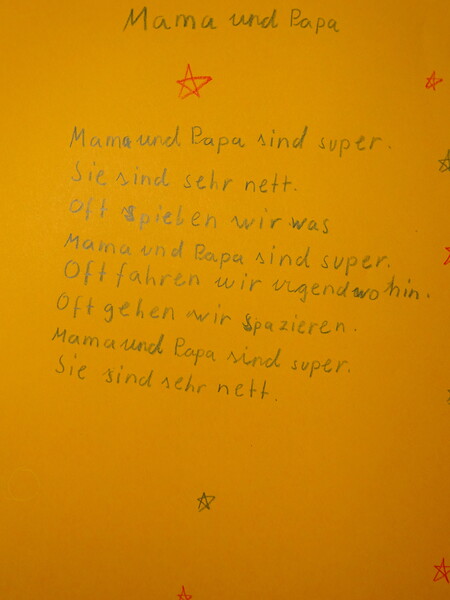 Mama und Papa
Mama und Papa sind super.
Sie sind sehr nett.
Oft spielen wir was
Mama und Papa sind super.
Oft fahren wir irgendwo hin.
Oft gehen wir spazieren.
Mama und Papa sind super.
Sie sind sehr nett.